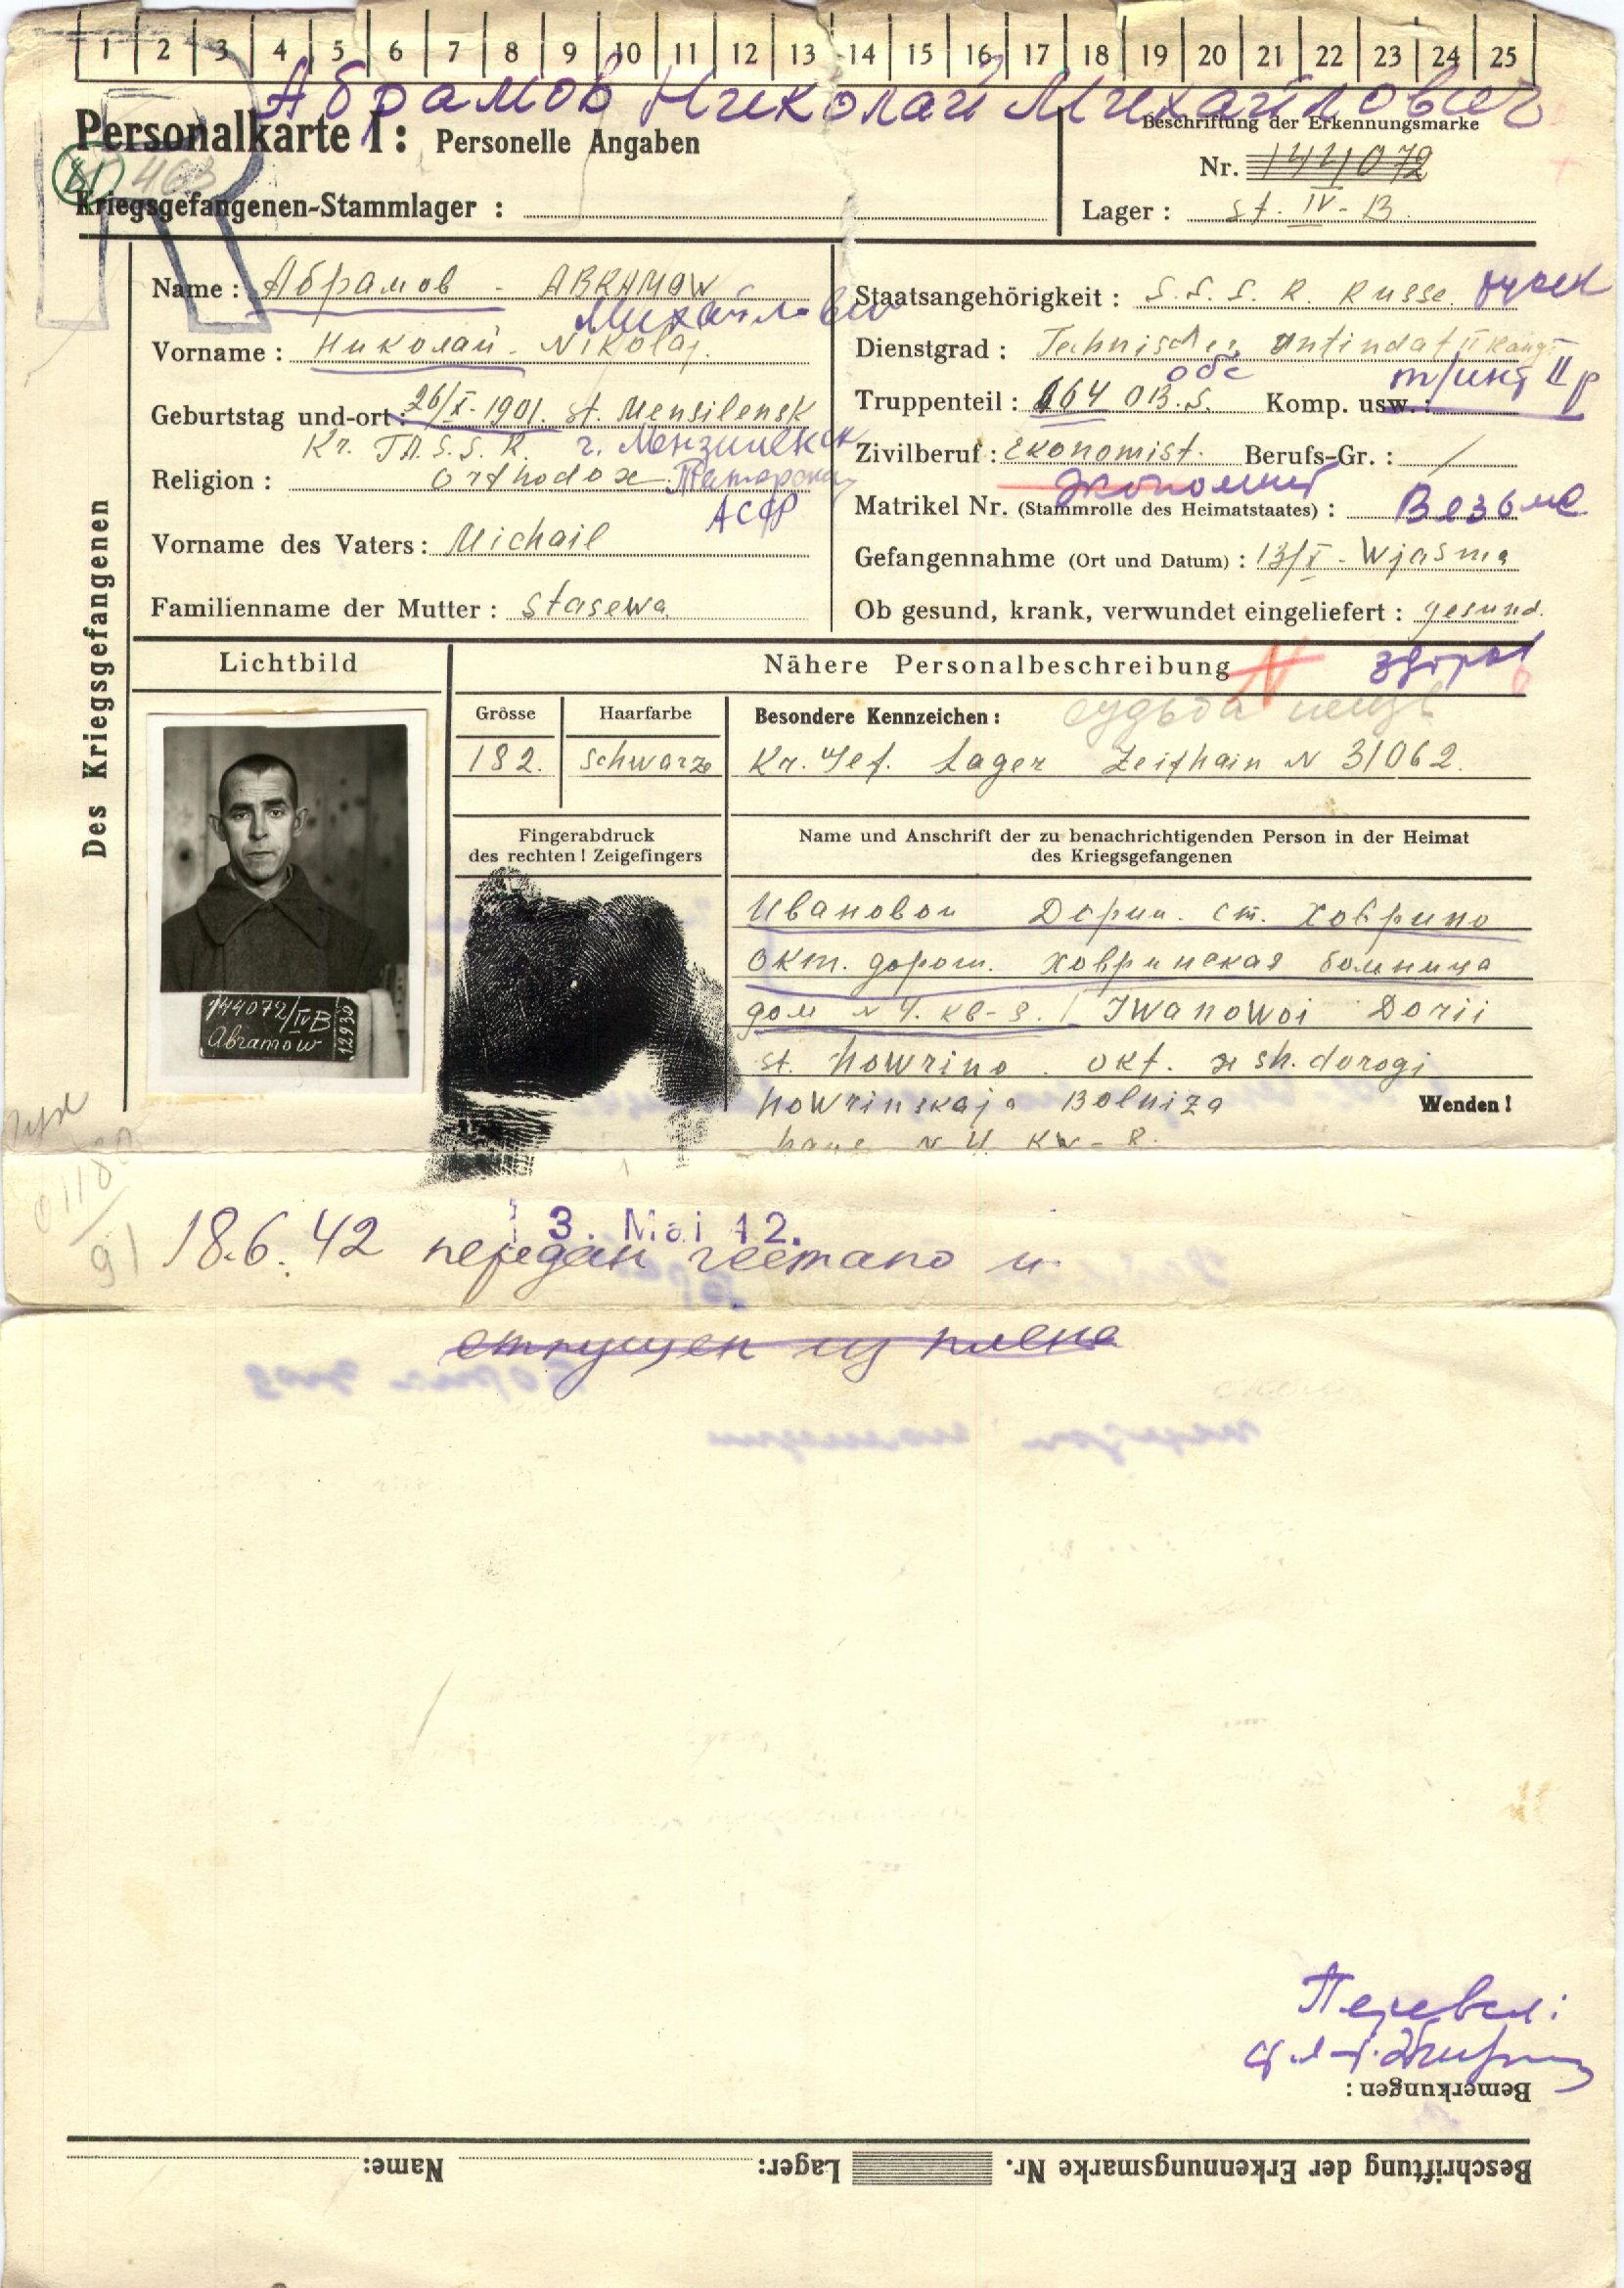 1 2 3 4 5 6 7 8 9 10 11 12 13 14 15 16 17 18 19 20 21 22 23 24 25
Абрамов Николай Михайлович
Personalkarte I: Personelle Angaben
Beschriftung der Erkennungsmarke
Nr. 144072
463
Kriegsgefangenen-Stammlager :
Lager : St. IV-B.
Des Kriegsgefangenen
Name : Абрамов - ABRAMOW
Михайлович
Vorname : Николай - Nikolaj.
Geburtstag und-ort : 26/X-1901. st. Mensilensk
Kr. TA.S.S.R. г. Мензилинск
Religion : Orthodox Татарская
АССР
Vorname des Vaters : Michail
Familienname der Mutter : Stasewa
Staatsangehörigkeit : S.S.S.R. Russe. русск
Dienstgrad : Technischer Intindat II Rang
обс т/инт II р
Truppenteil : 664 OB.S. Komp. usw. :
Zivilberuf : Ekonomist. Berufs-Gr. : /
Экономист
Matrikel Nr. (Stammrolle des Heimatstaates) :
Gefangennahme (Ort und Datum) : 13/X - Wjasma
Вязьме
Ob gesund, krank, verwundet eingeliefert : gesund.
здоров
Lichtbild
Nähere Personalbeschreibung
Grösse
182.
Haarfarbe
schwarze
Besondere Kennzeichen :
Kr. Gef. Lager Zeithain N 31062.
Fingerabdruck
des rechten ! Zeigefingers
Name und Anschrift der zu benachrichtigenden Person in der Heimat
des Kriegsgefangenen
Ивановой Дории. ст. Ховрино
Окт. дорог. Ховринская больница
дом N 4. кв-8. / Iwanowoi Dorii
st. Howrino. okt. sh. dorogi
Howrinskaja Bolniza
Haus N 4. Kw-8.
Wenden !
144072/IVB
Abramow
12930
3. Mai 42.
18.6.42 передан гестапо и
отпущен из плена
Перевел:
Bemerkungen :
Beschriftung der Erkennungsmarke Nr. Lager: Name: